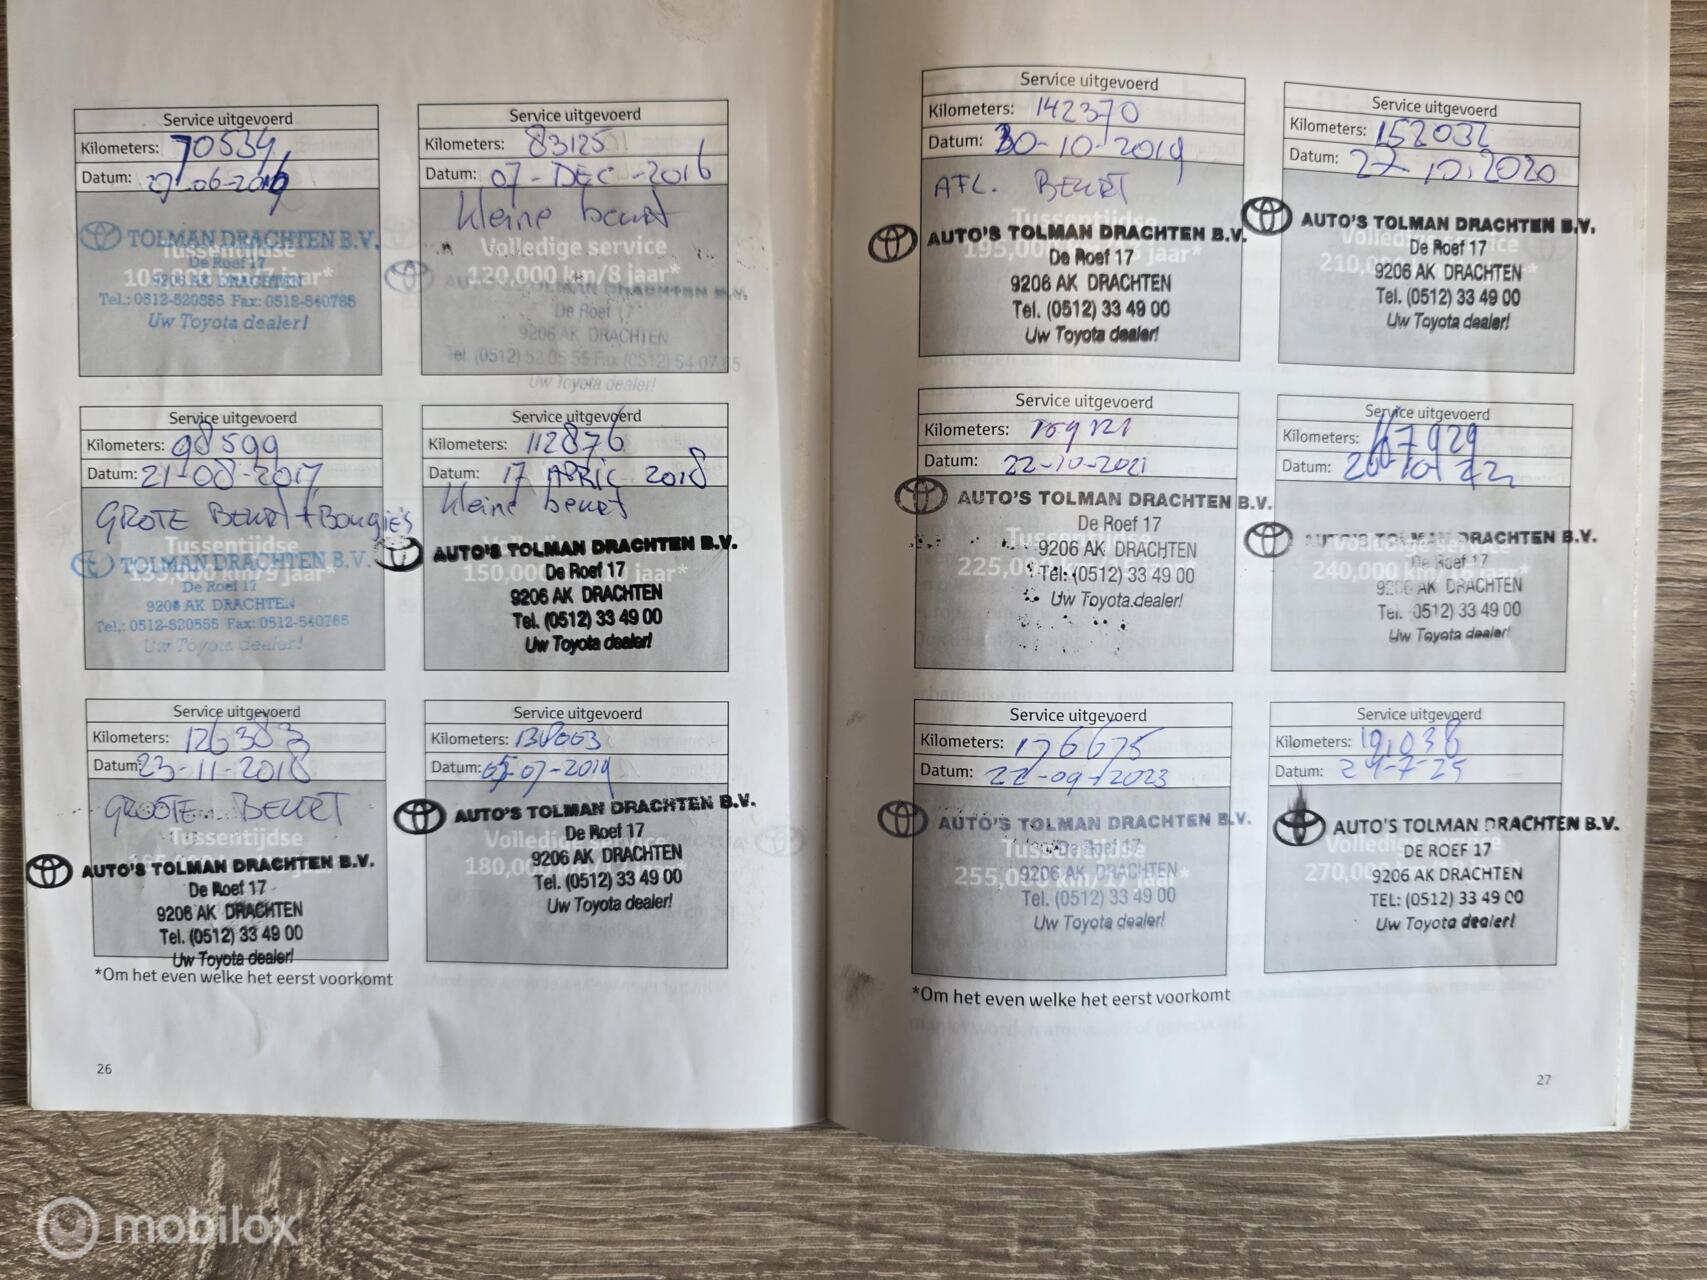 Service uitgevoerd
Kilometers: 70534
Datum: 27-06-2016
TOLMAN DRACHTEN B.V.
Tussentijdse
De Roef 17
105,000 km/7 jaar*
9206 AK DRACHTEN
Tel.: 0512-520555 Fax: 0512-540765
Uw Toyota dealer!
Service uitgevoerd
Kilometers: 83125
Datum: 07-DEC-2016
kleine beurt
Volledige service
120,000 km/8 jaar*
AUTO'S TOLMAN DRACHTEN B.V.
De Roef 17
9206 AK DRACHTEN
Tel. (0512) 52 05 55 Fax (0512) 54 07 65
Uw Toyota dealer!
Service uitgevoerd
Kilometers: 98599
Datum: 21-08-2017
GROTE BEURT + Bougie's
Tussentijdse
TOLMAN DRACHTEN B.V.
135,000 km/9 jaar*
De Roef 17
9206 AK DRACHTEN
Tel.: 0512-520555 Fax: 0512-540765
Uw Toyota dealer!
Service uitgevoerd
Kilometers: 112876
Datum: 17 APRIL 2018
kleine beurt
AUTO'S TOLMAN DRACHTEN B.V.
De Roef 17
150,000 jaar*
9206 AK DRACHTEN
Tel. (0512) 33 49 00
Uw Toyota dealer!
Service uitgevoerd
Kilometers: 126383
Datum: 23-11-2018
GROTE BEURT
Tussentijdse
AUTO'S TOLMAN DRACHTEN B.V.
De Roef 17
9206 AK DRACHTEN
Tel. (0512) 33 49 00
Uw Toyota dealer!
Service uitgevoerd
Kilometers:
Datum: 05-07-2019
AUTO'S TOLMAN DRACHTEN B.V.
De Roef 17
Volledige service
9206 AK DRACHTEN
180,000
Tel. (0512) 33 49 00
Uw Toyota dealer!
*Om het even welke het eerst voorkomt
26
Service uitgevoerd
Kilometers: 142370
Datum: 30-10-2019
AFL. BEURT
Tussentijdse
AUTO'S TOLMAN DRACHTEN B.V.
195,000 km/13 jaar*
De Roef 17
9206 AK DRACHTEN
Tel. (0512) 33 49 00
Uw Toyota dealer!
Service uitgevoerd
Kilometers: 152032
Datum: 27.10.2020
AUTO'S TOLMAN DRACHTEN B.V.
Volledige service
De Roef 17
210,000
9206 AK DRACHTEN
Tel. (0512) 33 49 00
Uw Toyota dealer!
Service uitgevoerd
Kilometers:
Datum: 22-10-2021
AUTO'S TOLMAN DRACHTEN B.V.
De Roef 17
Tussentijdse
9206 AK DRACHTEN
225,000
Tel. (0512) 33 49 00
Uw Toyota dealer!
Service uitgevoerd
Kilometers: 167929
Datum:
AUTO'S TOLMAN DRACHTEN B.V.
Volledige service
De Roef 17
240,000 jaar*
9206 AK DRACHTEN
Tel. (0512) 33 49 00
Uw Toyota dealer!
Service uitgevoerd
Kilometers: 176675
Datum: 22-09-2023
AUTO'S TOLMAN DRACHTEN B.V.
Tussentijdse
De Roef 17
255,000 km/17 jaar*
9206 AK DRACHTEN
Tel. (0512) 33 49 00
Uw Toyota dealer!
Service uitgevoerd
Kilometers:
Datum: 24-7-25
AUTO'S TOLMAN DRACHTEN B.V.
Volledige service
DE ROEF 17
270,000
9206 AK DRACHTEN
TEL: (0512) 33 49 00
Uw Toyota dealer!
*Om het even welke het eerst voorkomt
27
mobilox